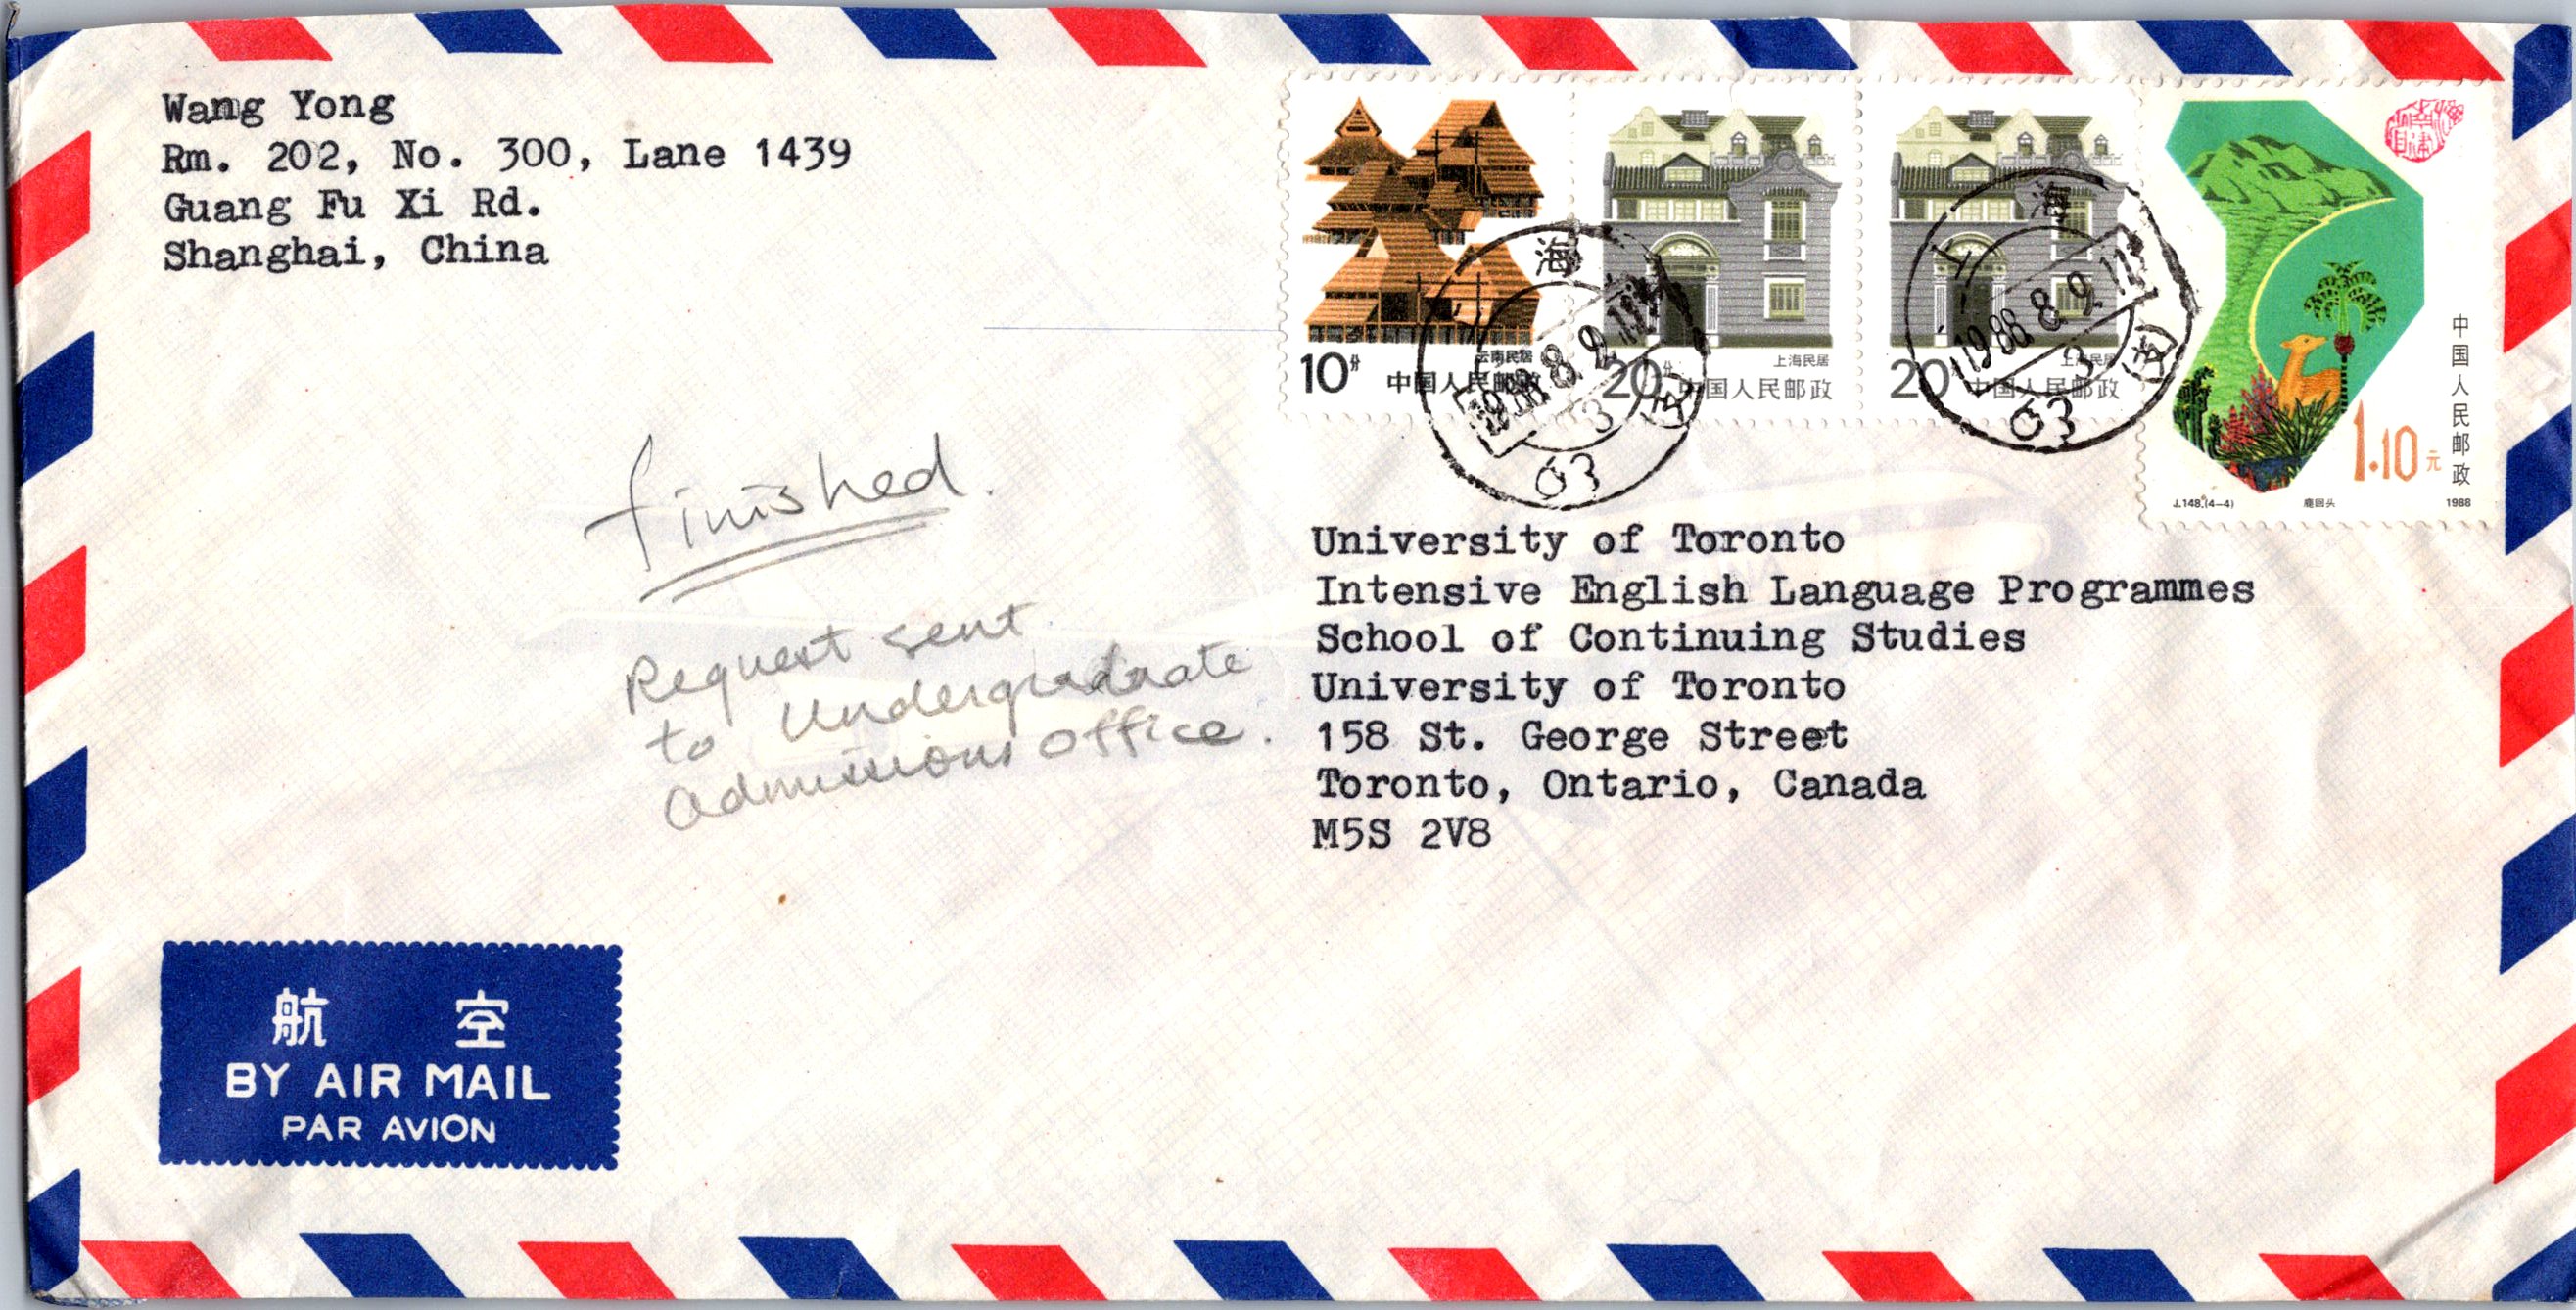 Wang Yong
Rm. 202, No. 300, Lane 1439
Guang Fu Xi Rd.
Shanghai, China
10分
云南民居
中国人民邮政
20分
上海民居
中国人民邮政
20分
上海民居
中国人民邮政
1.10元
中国人民邮政
J.148.(4-4) 鹿回头 1988
海
1988.8.9.
3
63
上海
1988.8.9.
3
63
finished.
Request sent
to Undergraduate
Admissions Office.
University of Toronto
Intensive English Language Programmes
School of Continuing Studies
University of Toronto
158 St. George Street
Toronto, Ontario, Canada
M5S 2V8
航 空
BY AIR MAIL
PAR AVION